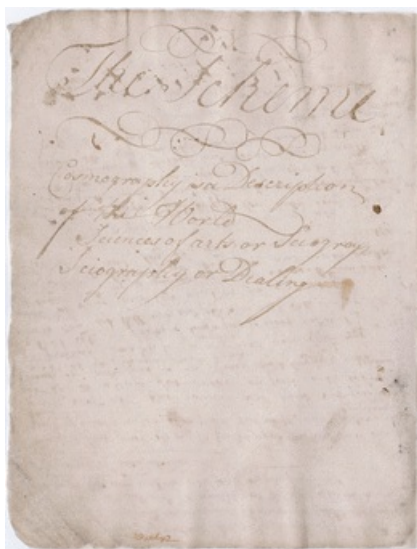 The Scheme
Cosmography is a Description
of the World
Sciences of arts or Sciograp
Sciography or Dealing